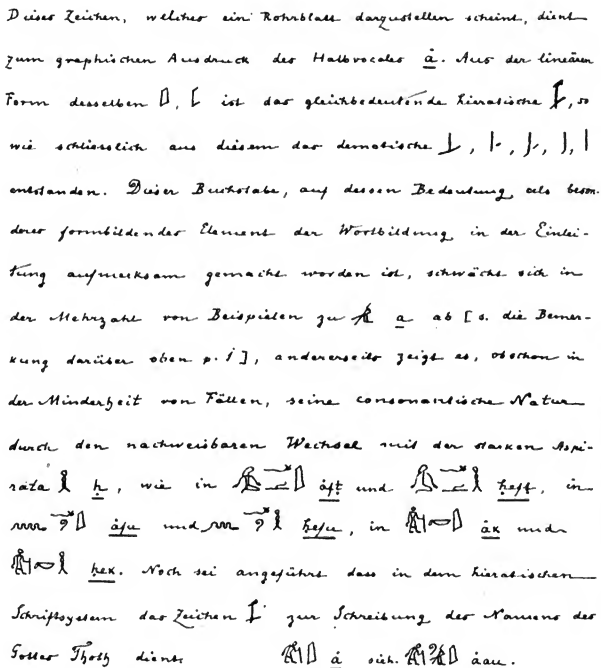 Dieses Zeichen, welches ein Rohrblatt darzustellen scheint, dient
zum graphischen Ausdruck des Halbvocales ȧ. Aus der lineären
Form desselben, ist das gleichbedeutende hieratische, so
wie schliesslich aus diesem das demotische
entstanden. Dieser Buchstabe, auf dessen Bedeutung als beson-
deres formbildendes Element der Wortbildung in der Einlei-
tung aufmerksam gemacht worden ist, schwächt sich in
der Mehrzahl von Beispielen zu 𓄿 a ab [s. die Bemer-
kung darüber oben p. 1], andererseits zeigt es, obschon in
der Minderheit von Fällen, seine consonantische Natur
durch den nachweisbaren Wechsel mit der starken Aspi-
rata 𓎛 ḥ, wie in ȧft und ḥeft, in
ȧfu und ḥefu, in ȧk und
ḥek. Noch sei angeführt dass in dem hieratischen
Schriftsystem das Zeichen zur Schreibung des Namens des
Gottes Thoth dient. ȧ sieh. ȧau.